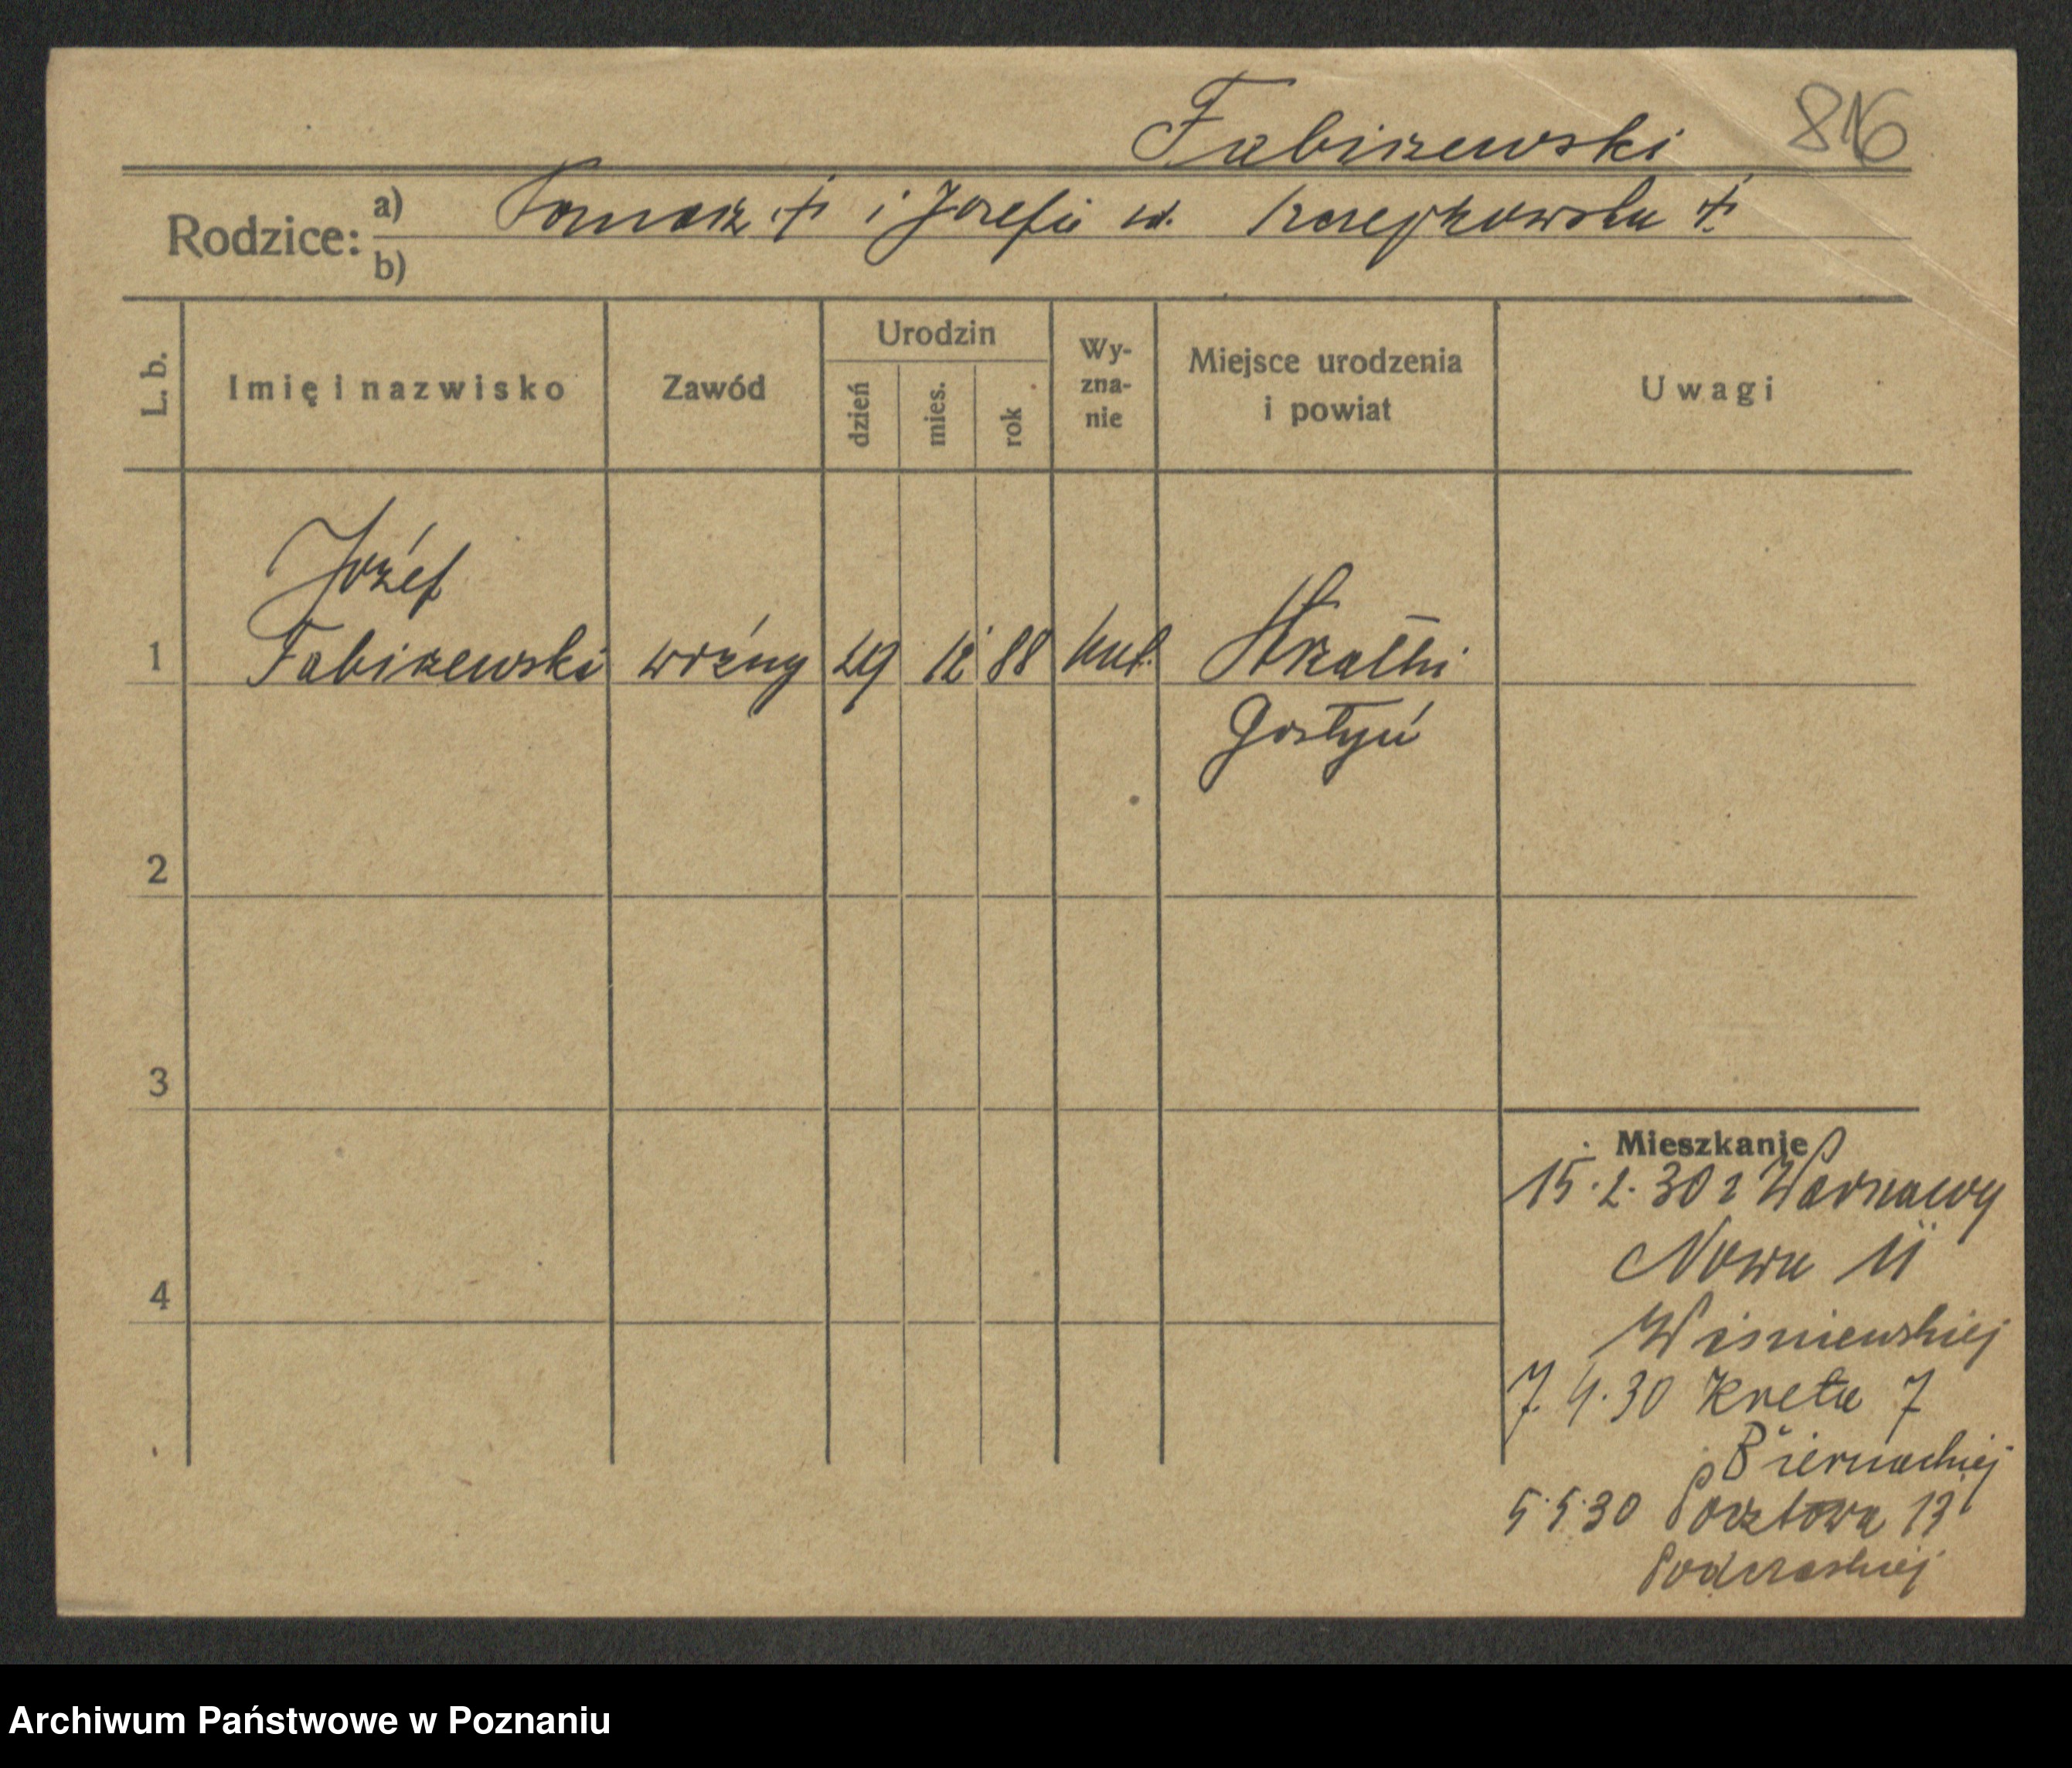 Fabiszewski 816
Rodzice: a) Tomasz + i Józefa ur. Szczepkowska +
b)
L. b. Imię i nazwisko Zawód Urodzin dzień mies. rok Wy-zna-nie Miejsce urodzenia i powiat Uwagi
Józef
1 Fabiszewski woźny 29 12 88 kat.
Gostyń
2
3
4
Mieszkanie
15.2.30 z Warszawy
Nowa 11
Wiśniewskiej
7.4.30 Kręta 7
Biernackiej
5.5.30 Pocztowa 13
Archiwum Państwowe w Poznaniu